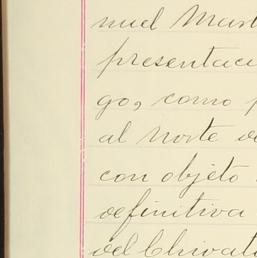 nuel Mart
presentaci
go, como p
al norte d
con objéto
definitiva
del Chivat